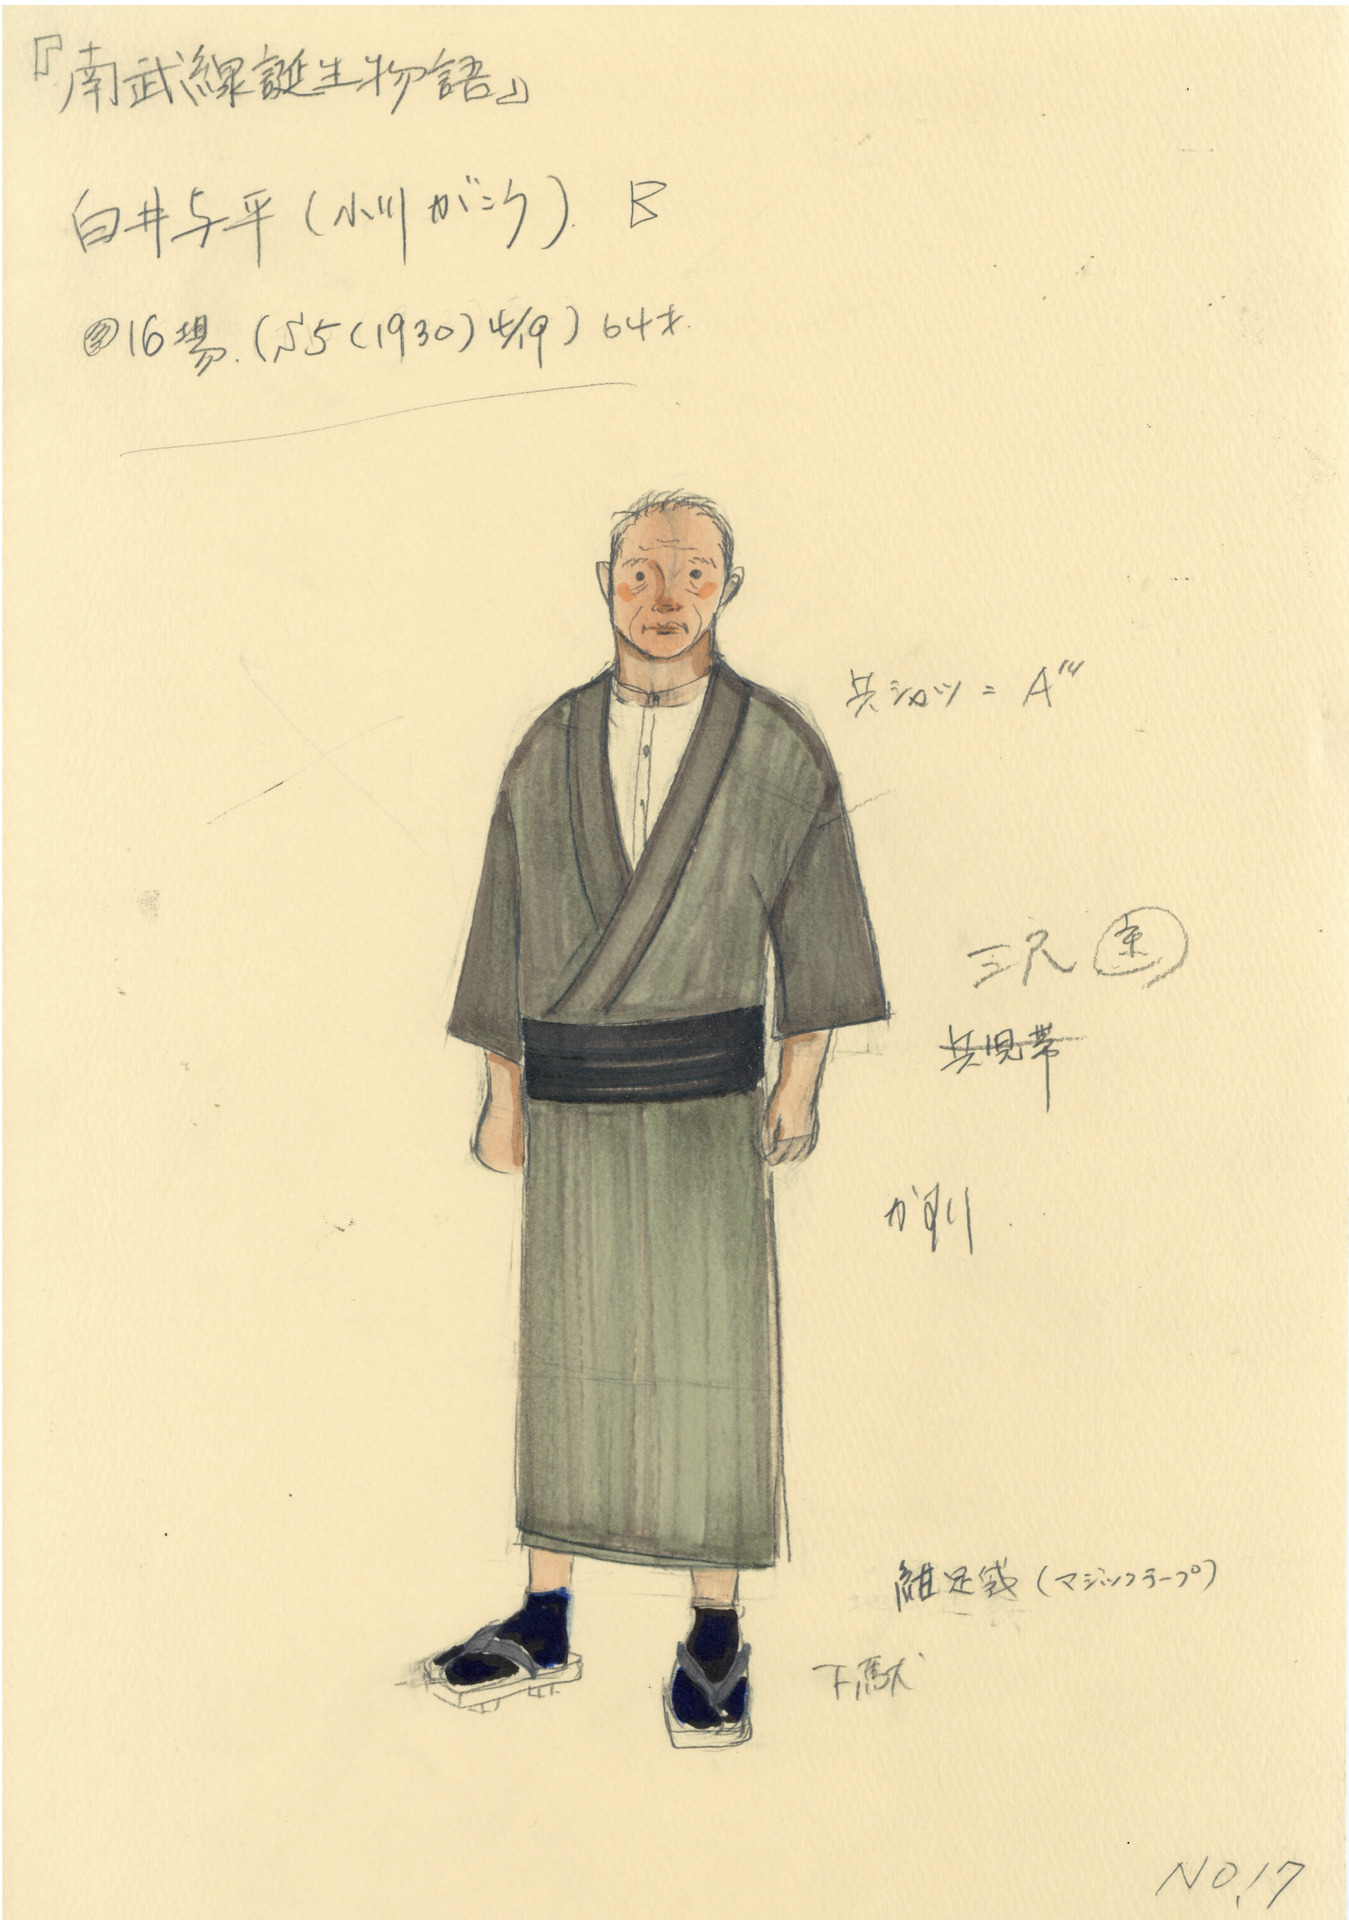 『南武線誕生物語』
白井与平(小川がこう) B
16場.(S5(1930)4/19) 64才.
共シャツ = A'''
三尺
兵児帯
紺足袋(マジックテープ)
下駄
NO.17